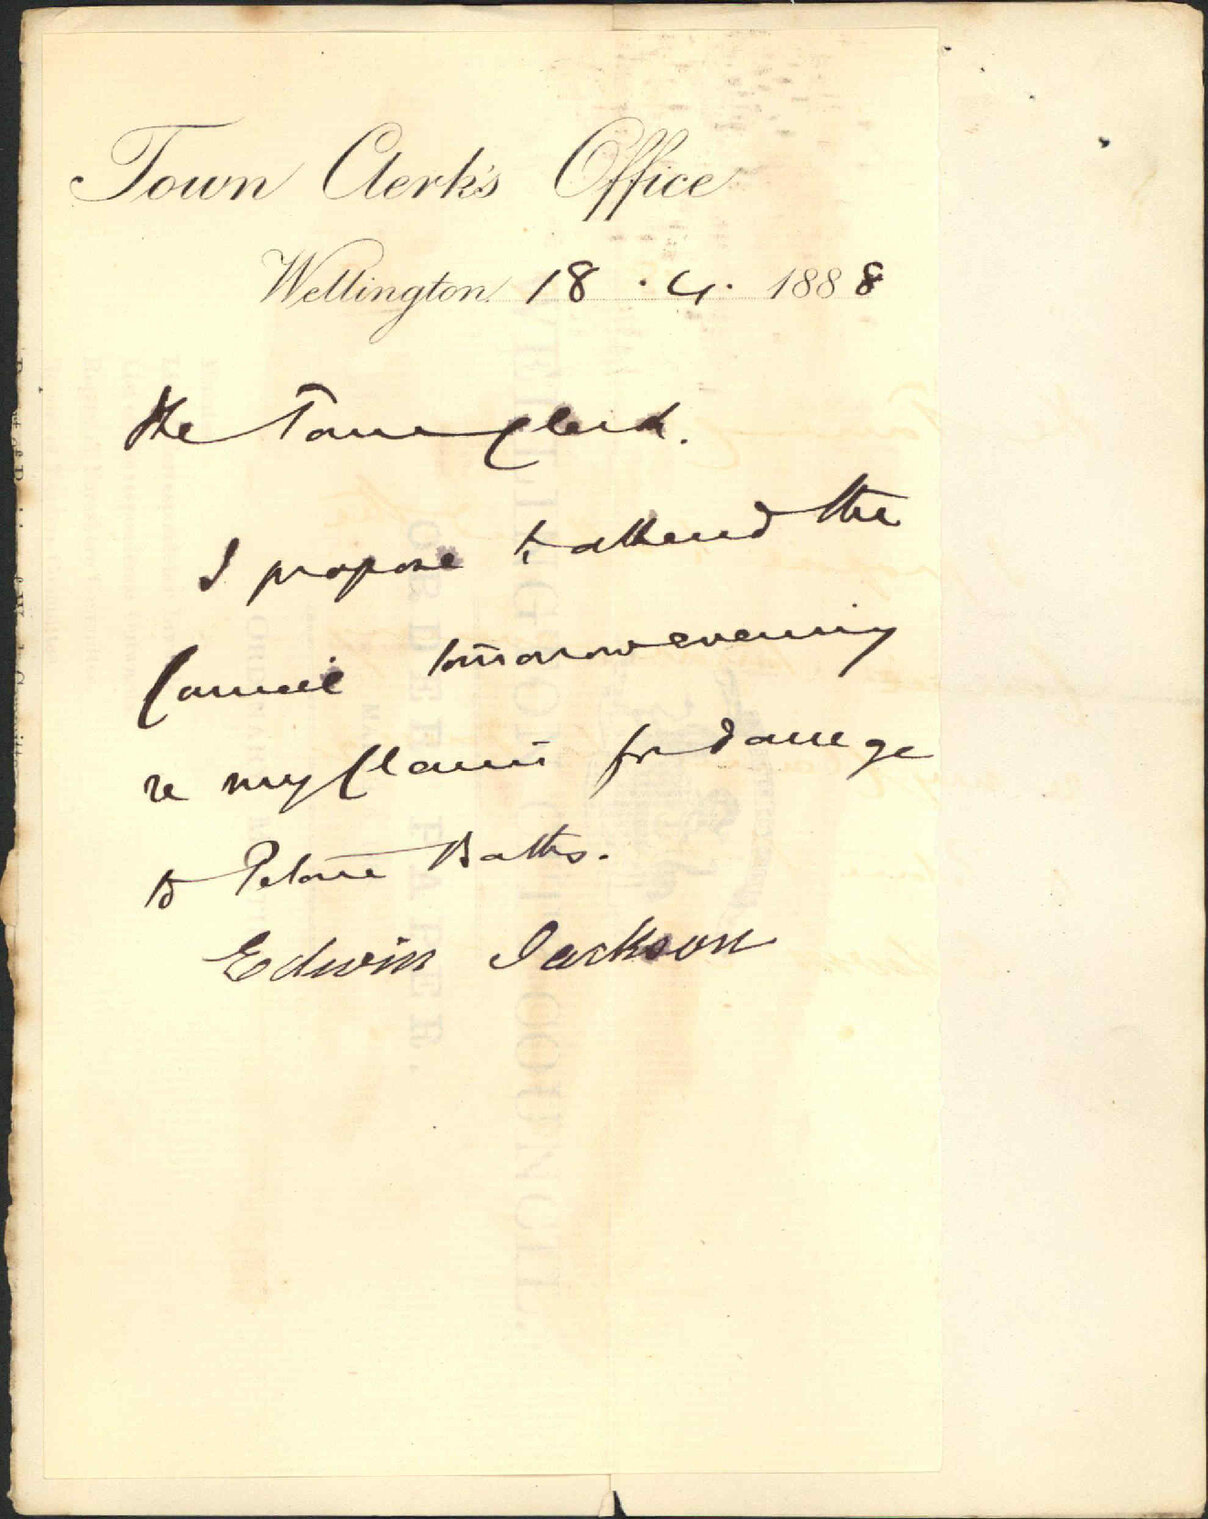 Town Clerk's Office
Wellington 18.4.1888
The Town Clerk.
I propose to attend the
Council tomorrow evening
re my Claim for damage
to Petone Baths.
Edwin Jackson